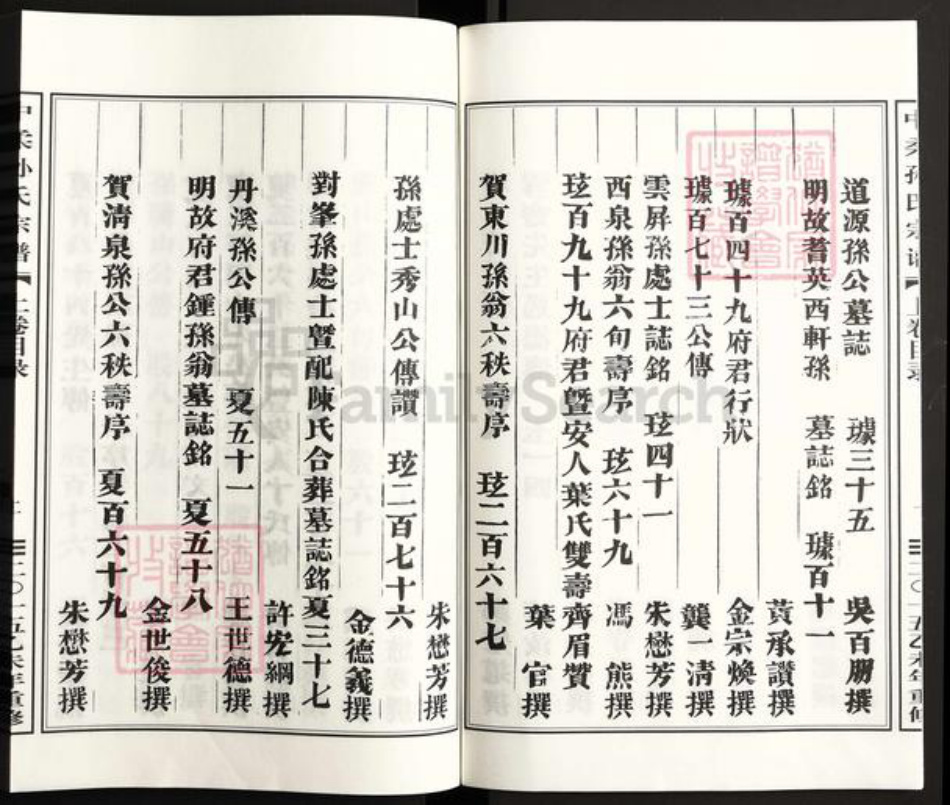 道源孫公墓誌 璩三十五 吳百朋撰
明故耆英西軒孫 墓誌銘 璩百十一
黃承讚撰
璩百四十九府君行狀 金宗煥撰
璩百七十三公傳 龔一清撰
雲屏孫處士誌銘 玹四十一 朱懋芳撰
西泉孫翁六旬壽序 玹六十九 馮熊撰
玹百九十九府君暨安人葉氏雙壽齊眉贊
葉官撰
賀東川孫翁六秩壽序 玹二百六十七
朱懋芳撰
孫處士秀山公傳讚 玹二百七十六
金德義撰
對峯孫處士暨配陳氏合葬墓誌銘夏三十七
許宏綱撰
丹溪孫公傳 夏五十一 王世德撰
明故府君鍾孫翁墓誌銘 夏五十八
金世俊撰
賀清泉孫公六秩壽序 夏百六十九
朱懋芳撰
孙氏宗譜
上卷目录
二〇一五乙未年重修
FamilySearch